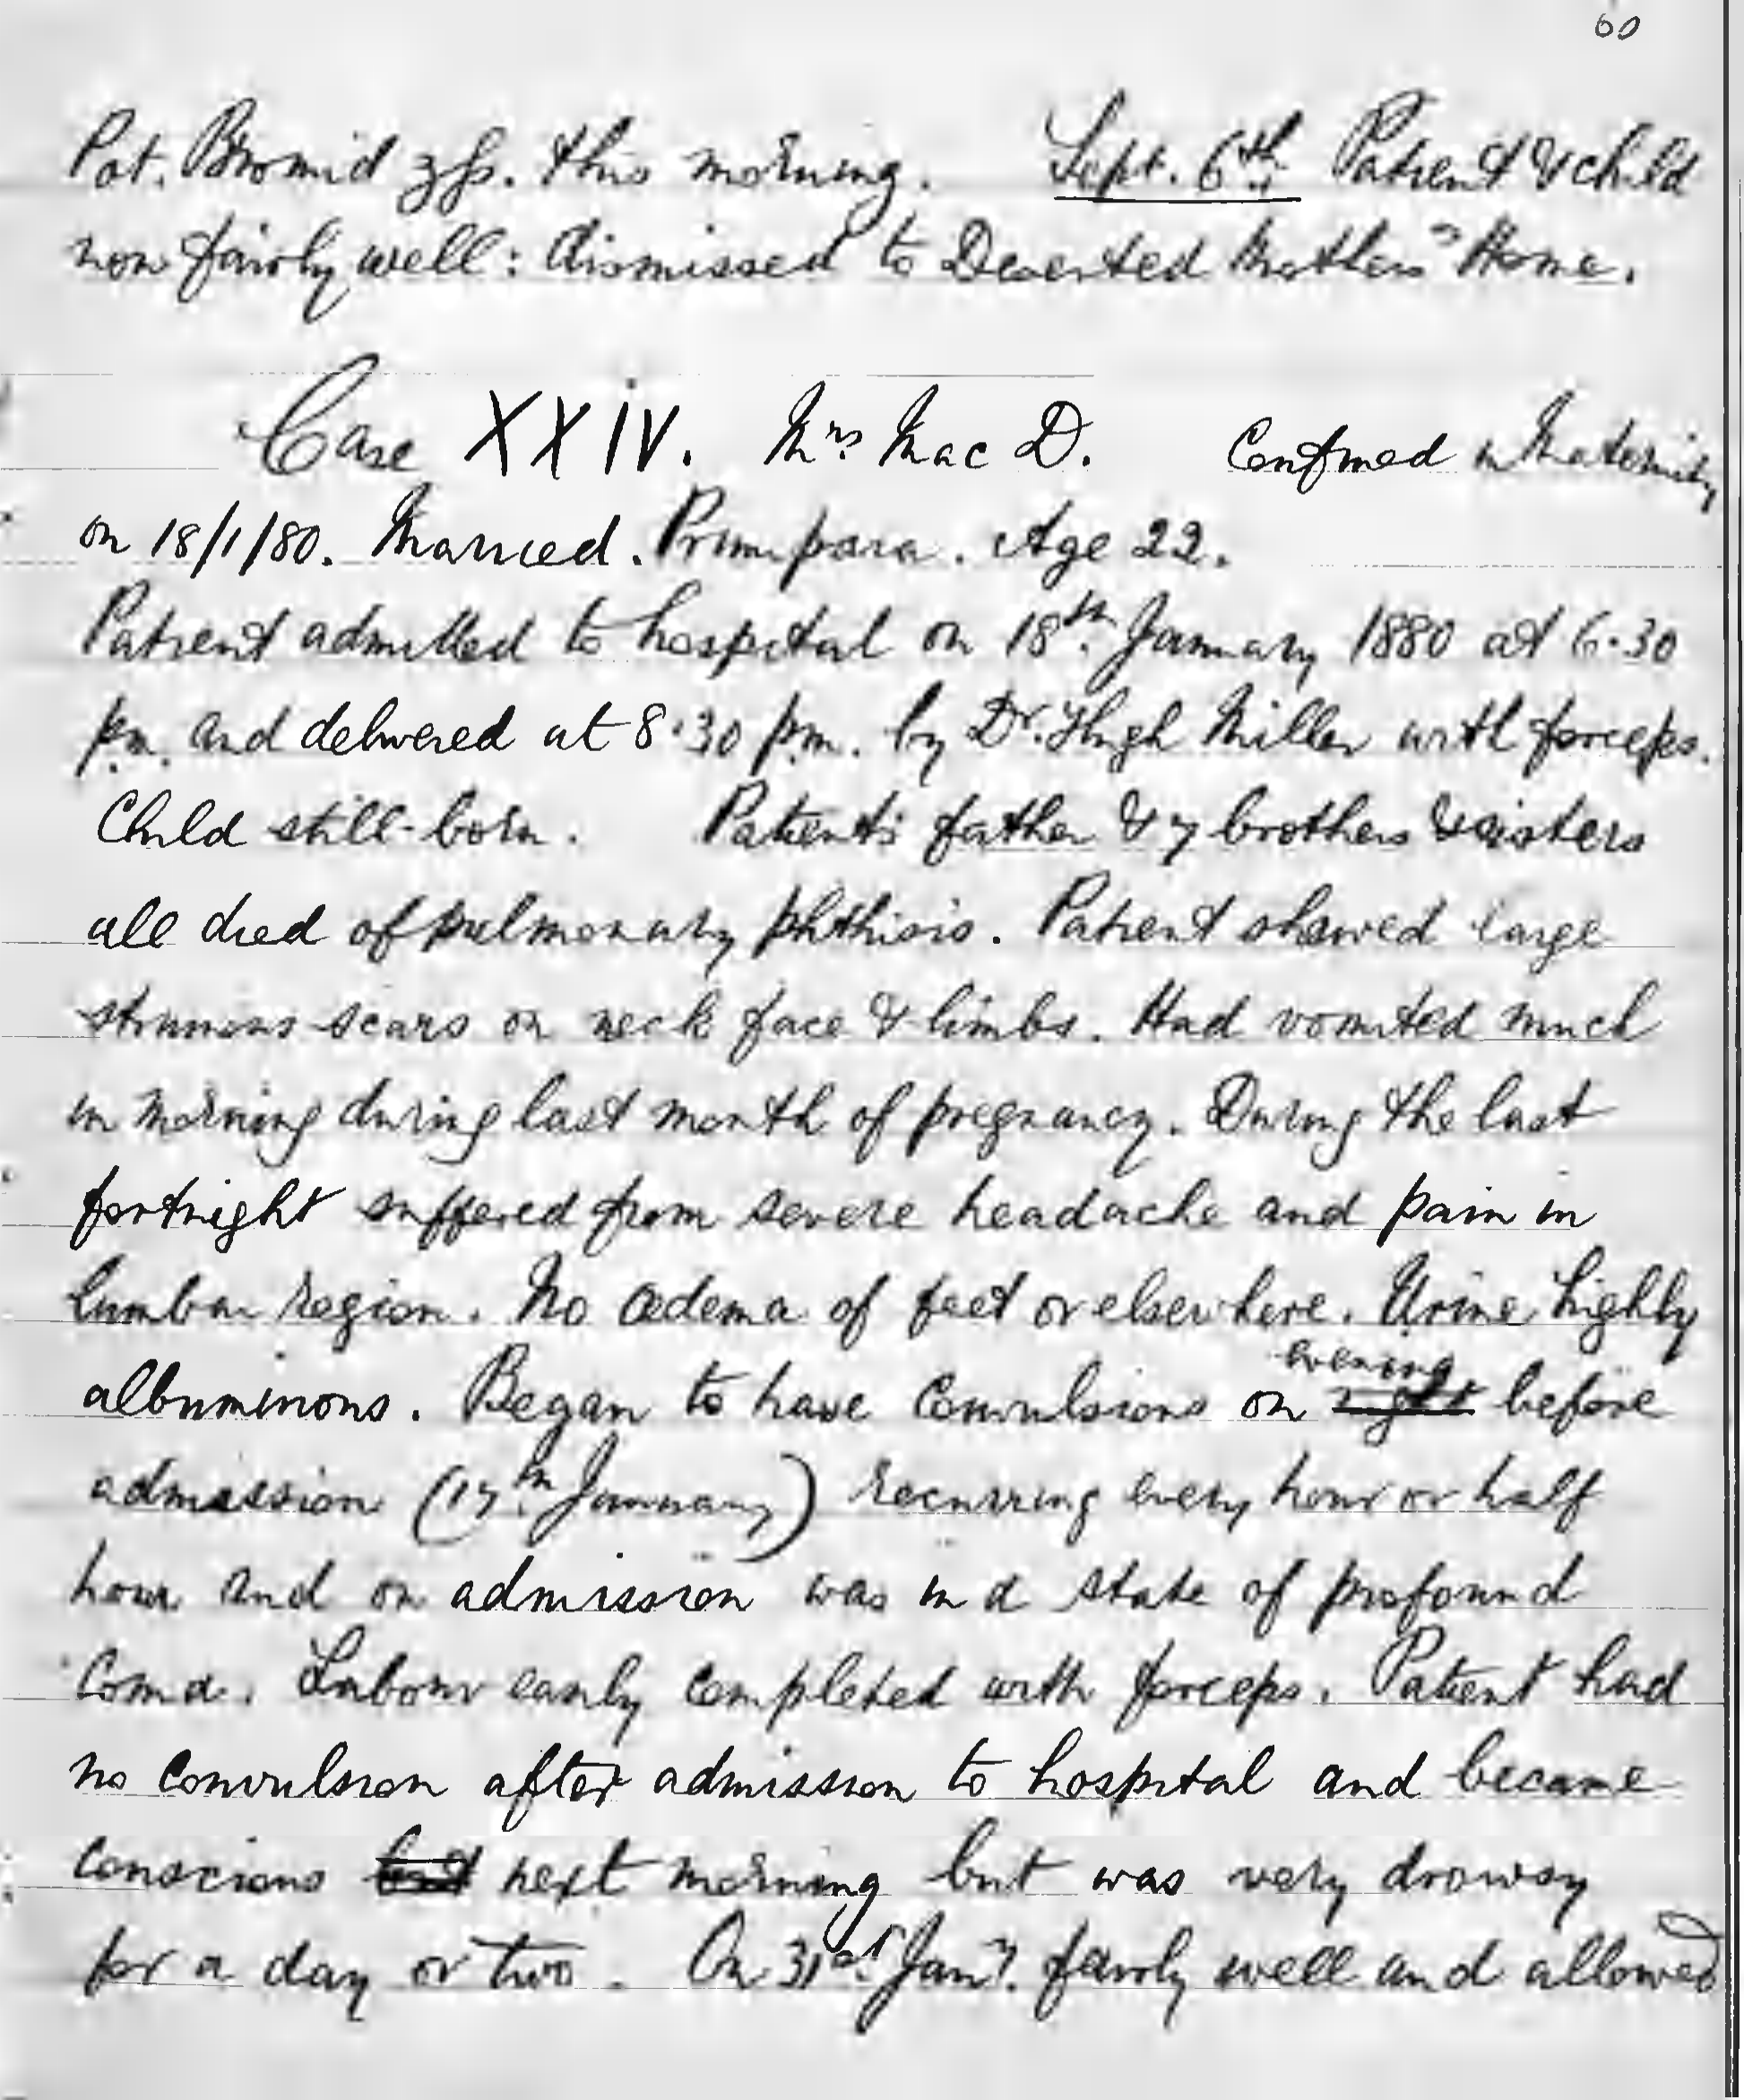 60
Pot. Bromid ʒfs. this morning. Sept. 6th Patient & child
now fairly well: dismissed to Deserted Mothers' Home.
Case XXIV. Mrs Mac D. Confined in Maternity
on 18/1/80. Married. Primipara. Age 22.
Patient admitted to hospital on 18th January 1880 at 6.30
p.m. and delivered at 8.30 p.m. by Dr. Hugh Miller with forceps.
Child still-born. Patient's father & 7 brothers & sisters
all died of pulmonary phthisis. Patient showed large
strumous scars on neck face & limbs. Had vomited much
in morning during last month of pregnancy. During the last
fortnight suffered from severe headache and pain in
lumbar region. No œdema of feet or elsewhere. Urine highly
albuminous. Began to have convulsions on night evening before
admission (17th January) recurring every hour or half
hour and on admission was in a state of profound
coma. Labour easily completed with forceps. Patient had
no convulsion after admission to hospital and became
conscious but next morning but was very drowsy
for a day or two. On 31st Jany. fairly well and allowed